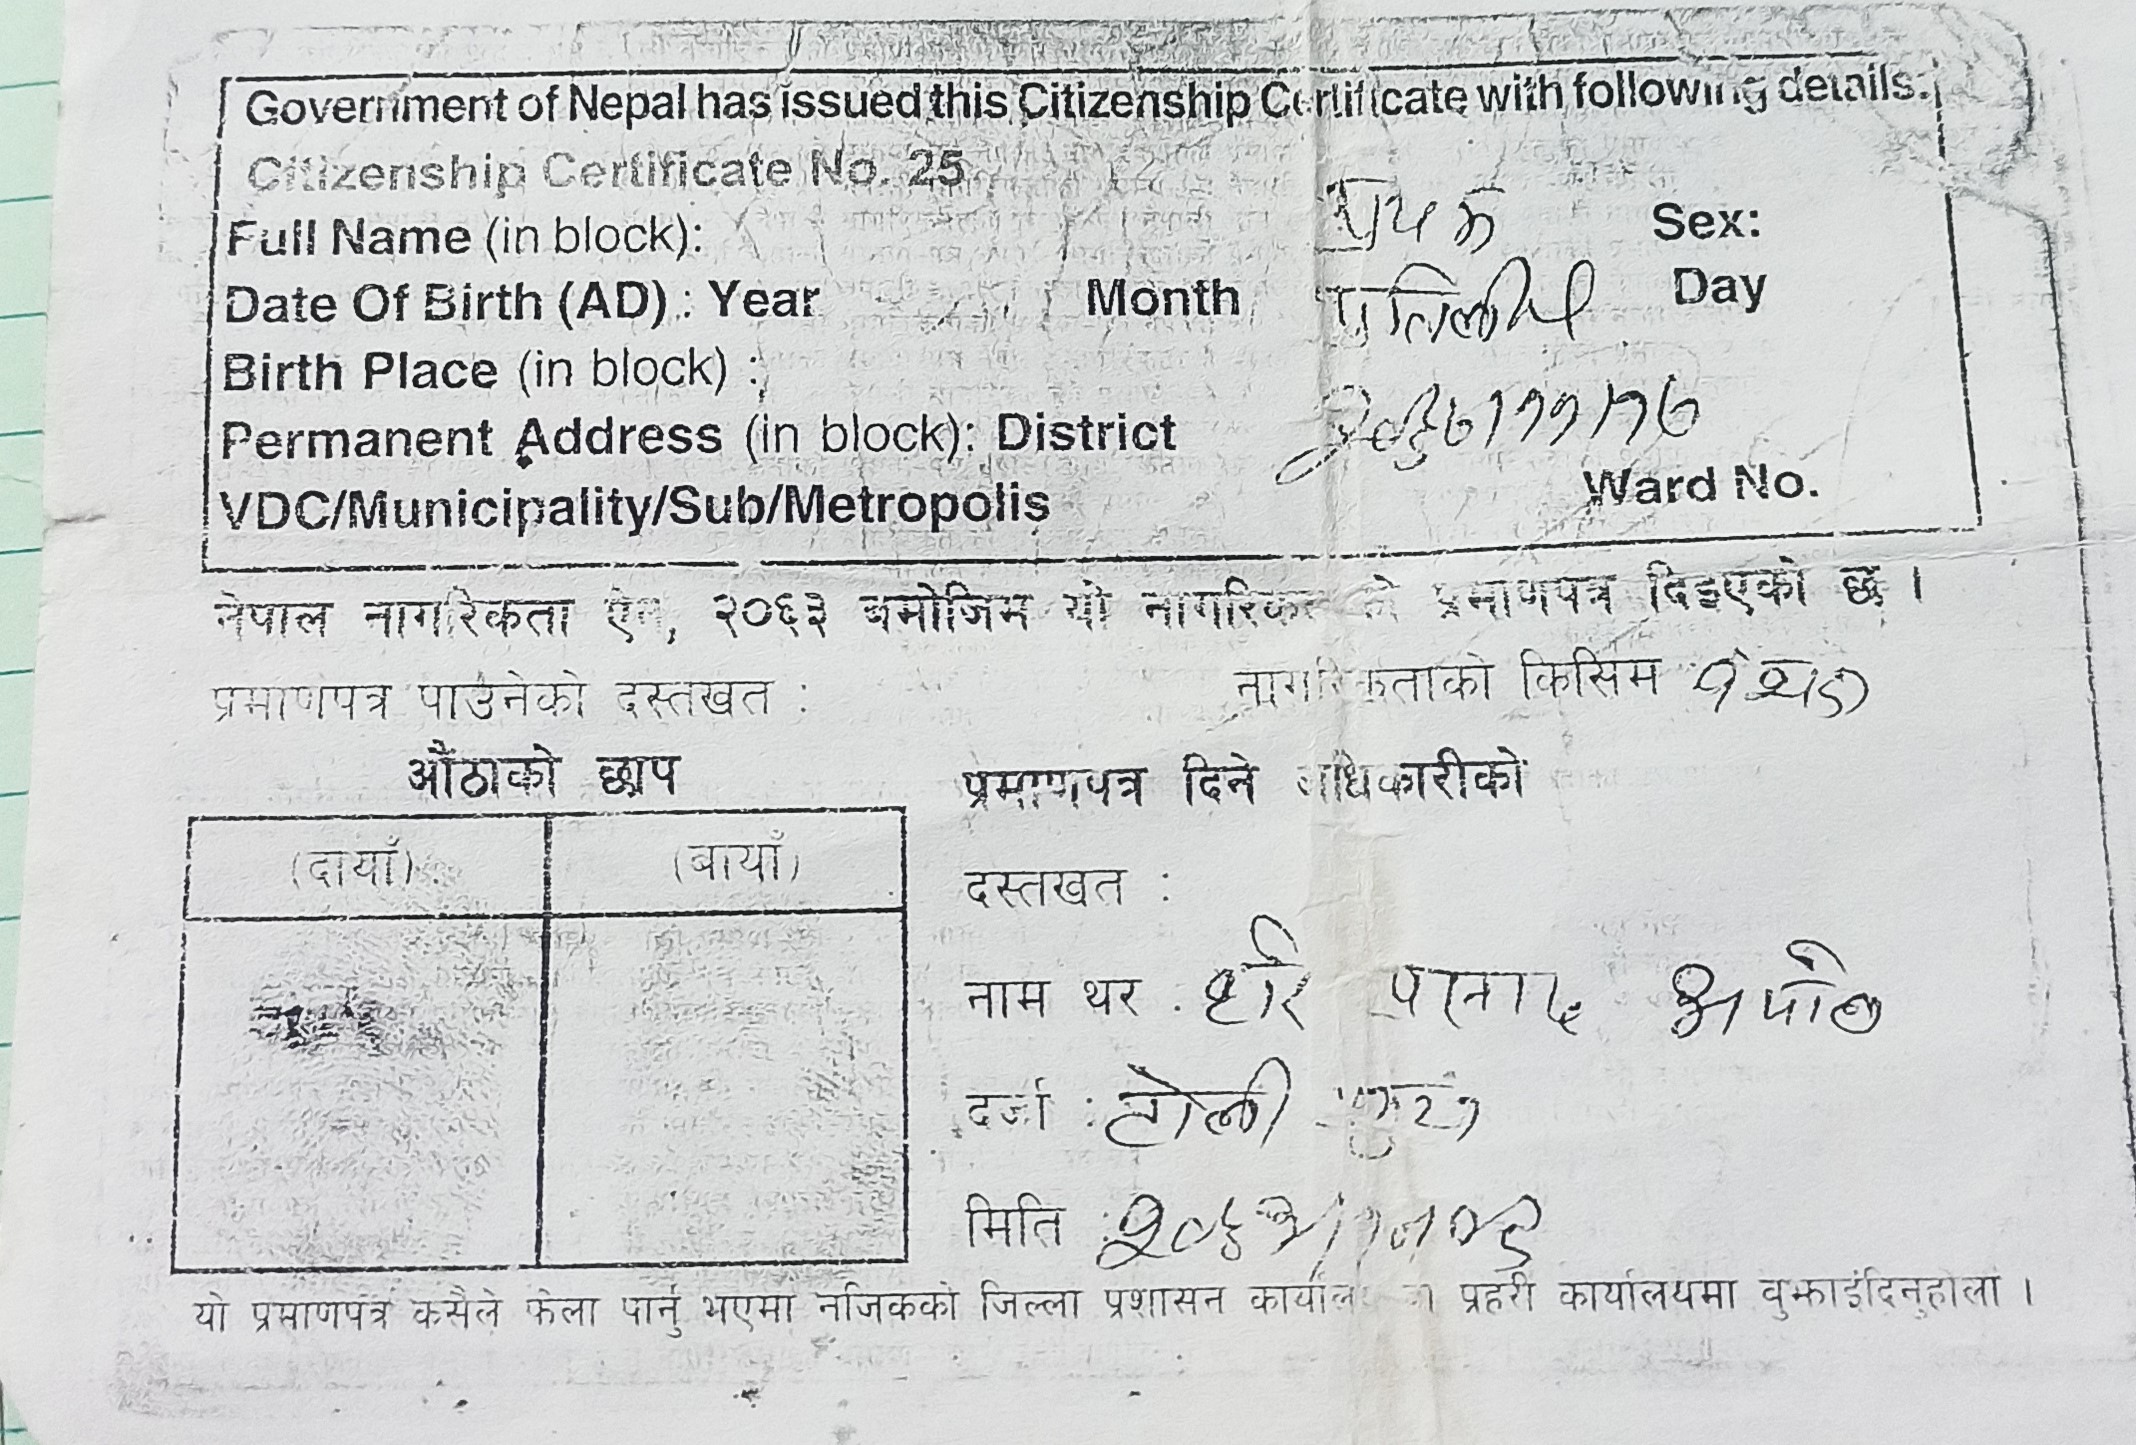 Government of Nepal has issued this Citizenship Certificate with following details:
Citizenship Certificate No. 25
Full Name (in block): Sex:
Date Of Birth (AD) : Year Month Day
प्रतिलीपी
Birth Place (in block) :
Permanent Address (in block): District
VDC/Municipality/Sub/Metropolis Ward No.
नेपाल नागरिकता ऐन, २०६३ बमोजिम यो नागरिकताको प्रमाणपत्र दिइएको छ ।
प्रमाणपत्र पाउनेको दस्तखत : नागरिकताको किसिम
औंठाको छाप
(दायाँ) (बायाँ)
प्रमाणपत्र दिने अधिकारीको
दस्तखत :
नाम थर : हरि प्रसाद
दर्जा : टोली
मिति :
यो प्रमाणपत्र कसैले फेला पार्नु भएमा नजिकको जिल्ला प्रशासन कार्यालय वा प्रहरी कार्यालयमा वुझाइदिनुहोला ।